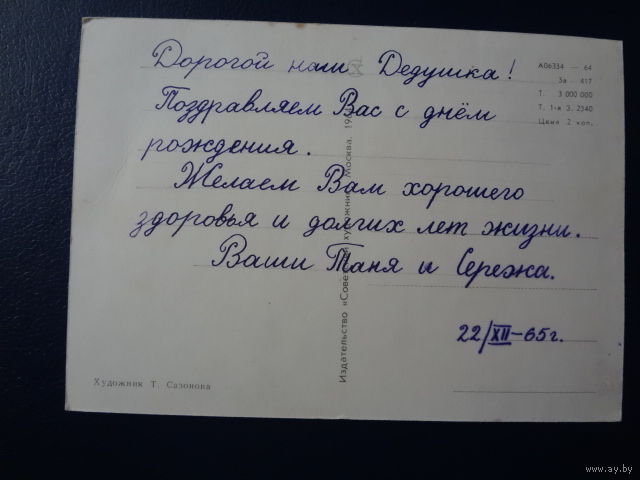 Дорогой наш Дедушка!
Поздравляем Вас с днём
рождения.
Желаем Вам хорошего
здоровья и долгих лет жизни.
Ваши Таня и Сережа.
22/XII–65г.
А06334 — 64
За 417
Т. 3 000 000
Т. 1-я З. 2340
Цена 2 коп.
Издательство «Советский художник». Москва.
Художник Т. Сазонова
www.ay.by